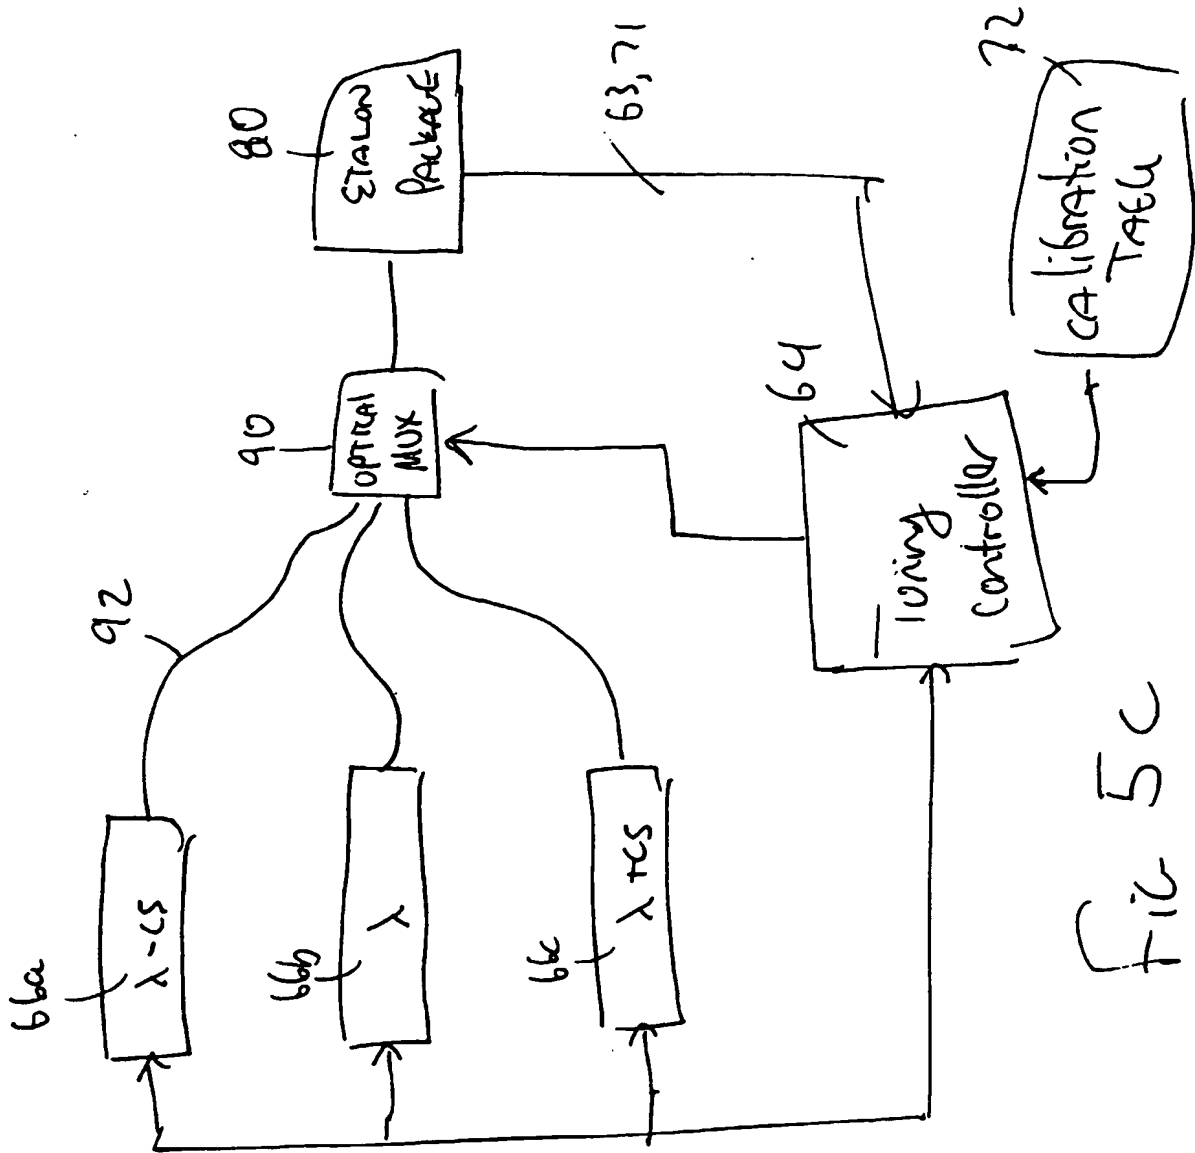 66a
λ-CS
92
66b
λ
66c
λ+CS
90
OPTICAL
MUX
80
ETALON
PACKAGE
63,71
64
Tuning
controller
72
CALibrAtion
Fig 5c